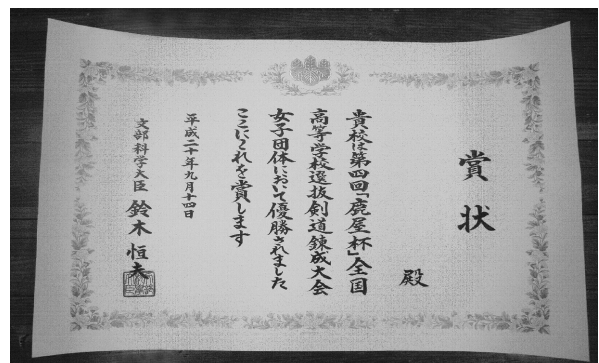 賞状
殿
貴校は第四回「鹿屋杯」全国
高等学校選抜剣道錬成大会
女子団体において優勝されました
ここにこれを賞します
平成二十年九月十四日
文部科学大臣 鈴木恒夫